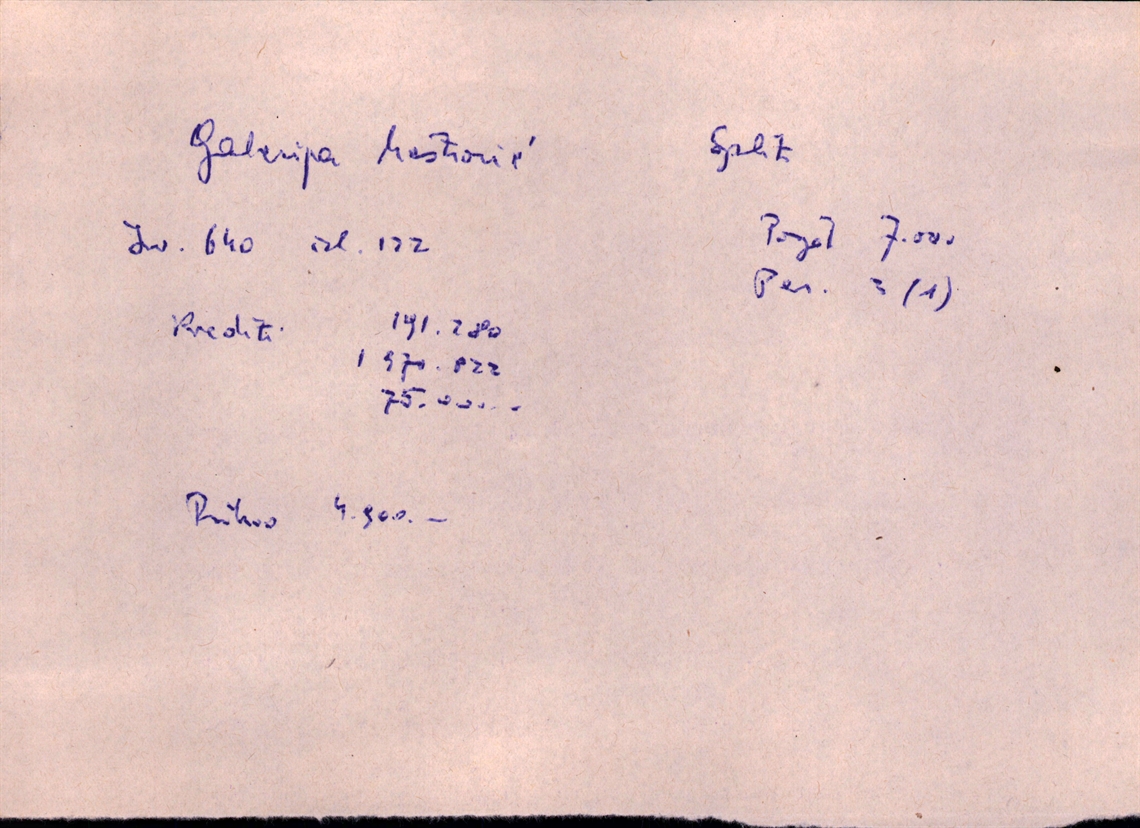 Galerija Meštrović Split
Inv. 640 izl. 122
Posjet 7.000
Per. 3 (1)
Krediti 191.280
1 970.822
75.000.-
4.900.-